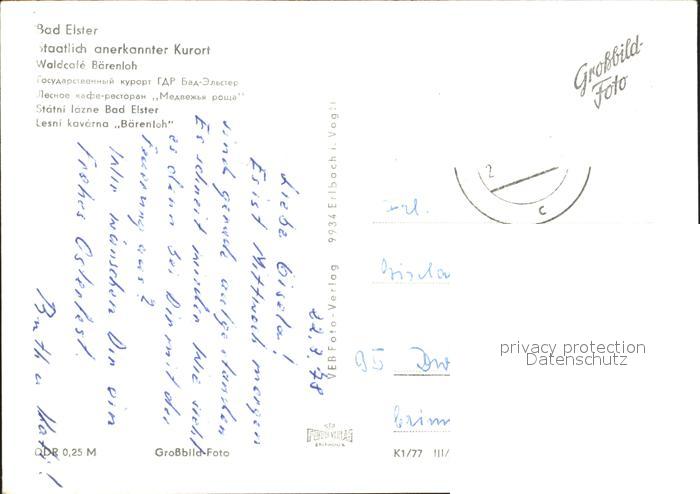 Bad Elster
Staatlich anerkannter Kurort
Waldcafé Bärenloh
Государственный курорт ГДР Бад-Эльстер
Лесное кафе-ресторан „Медвежья роща"
Státní lázne Bad Elster
Lesní kavárna „Bärenloh"
Großbild-
Foto
2
C
22.3.78
Liebe Gisela!
Es ist Mittwoch morgen
sind gerade aufgestanden
Es schneit wieder Wie sieht
es denn bei Dir mit der
aus?
Wir wünschen Dir ein
frohes Osterfest.
Ruth u
VEB Foto-Verlag 9934 Erlbach i. Vogtl
Frl.
Gisela
95
Crim
DDR 0,25 M
Großbild-Foto
K1/77 III/
privacy protection
Datenschutz